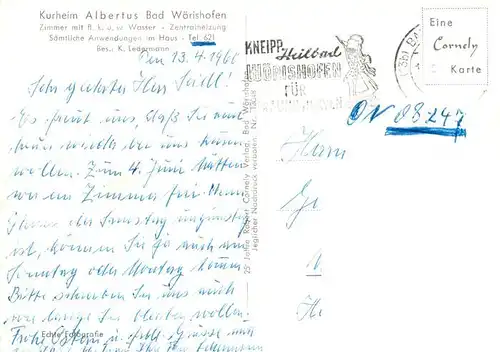 Kurheim Albertus Bad Wörishofen
Zimmer mit fl. k. u. w. Wasser - Zentralheizung
Sämtliche Anwendungen im Haus - Tel. 621
Bes.: K. Ledermann
Den 13.4.196
Sehr geehrter Herr Seidl!
Es freut uns, daß Sie nun
wieder bei uns
wollen. Zum 4. Juni hätten
wir ein Zimmer frei. Wenn
der Samstag ungünstig
ist, können Sie ja auch am
Sonntag oder Montag kommen.
Bitte schreiben Sie uns auch
wie lange Sie bleiben wollen.
Frohe Ostern u. Grüsse
Echte Fotografie
25 Jahre Robert Cornely Verlag, Bad Wörishofen
Jeglicher Nachdruck verboten. Nr.
KNEIPP Heilbad
WÖRISHOFEN
FÜR
Eine
Cornely
Karte
ON 08247
Herrn